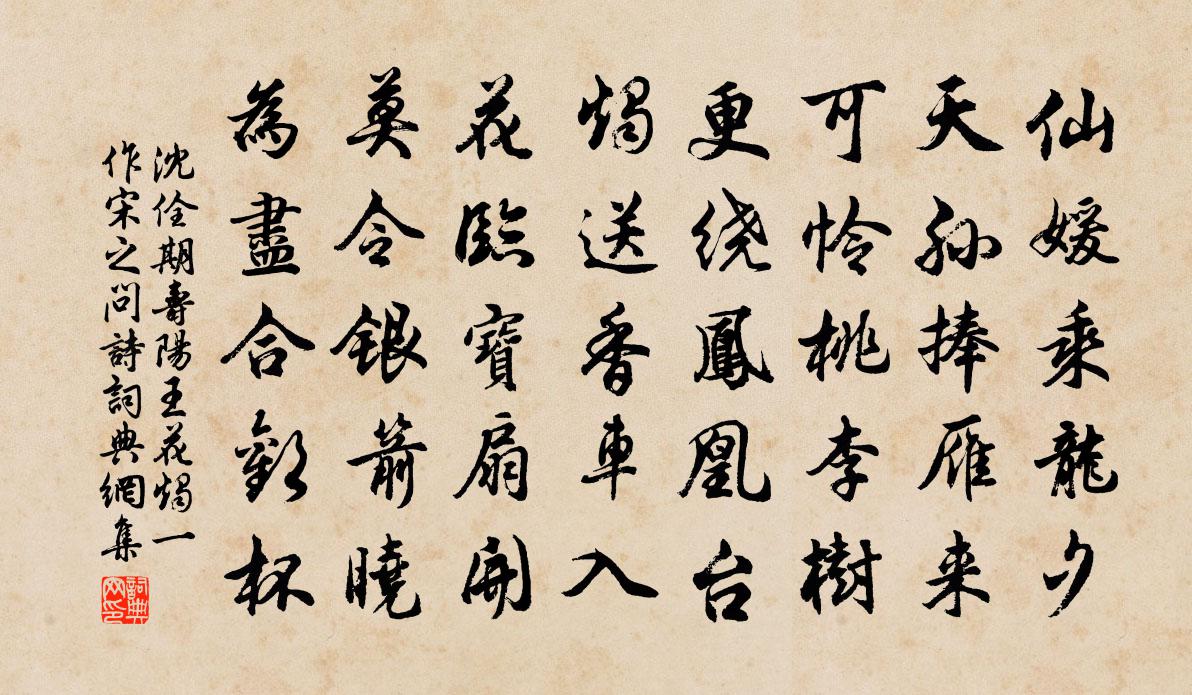 仙媛乘龍夕
天孫捧雁来
可怜桃李樹
更绕鳳凰台
燭送香車入
花臨寶扇開
莫令銀箭曉
為盡合歡杯
沈佺期壽陽王花燭一
作宋之问詩詞典網集
詞典网印